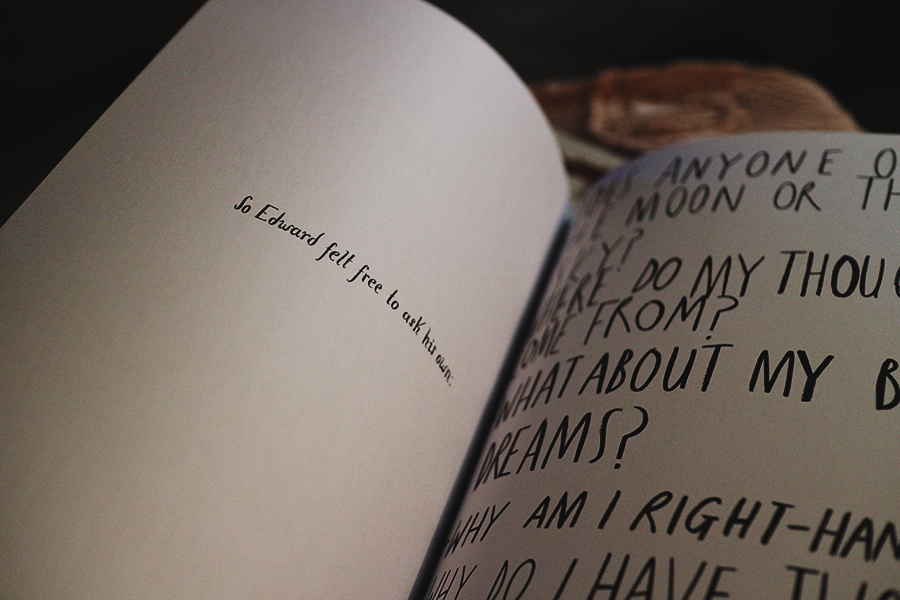 So Edward felt free to ask his own:
ANYONE
MOON OR
DO MY
FROM?
WHAT ABOUT MY
DREAMS?
WHY AM I RIGHT-HAN
WHY DO I HAVE